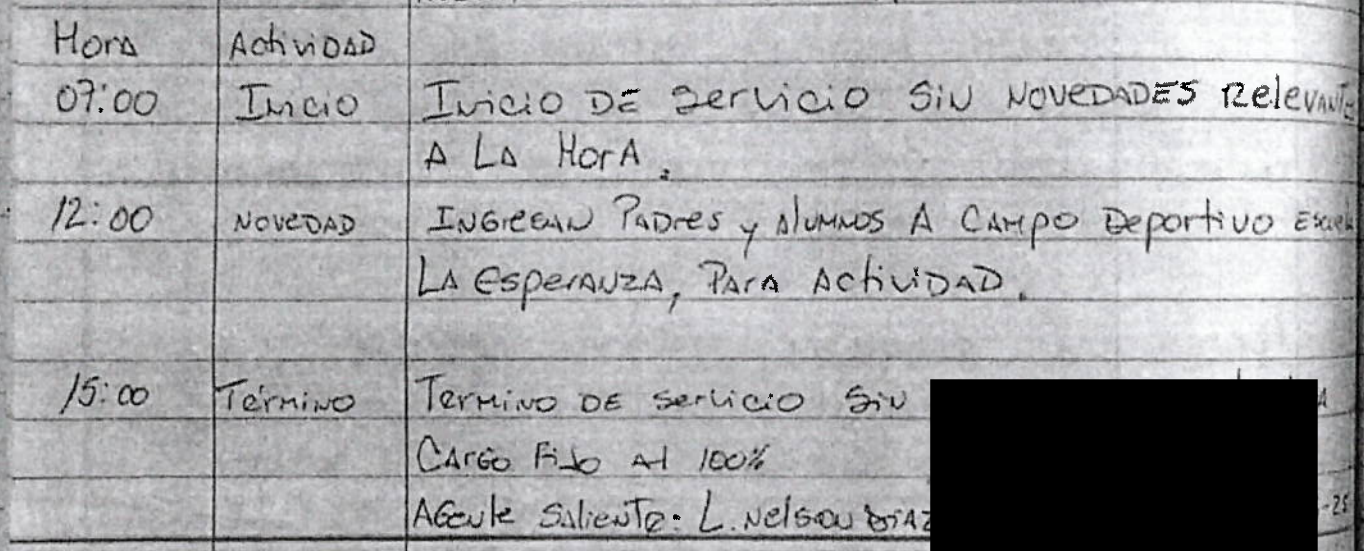 Hora Actividad
07:00 Inicio Inicio DE servicio Sin NOVEDADES Relevante
A LA HorA.
12:00 NOVEDAD INGresAN PADres y Alumnos A CAMPO Deportivo
LA EsperANZA, PArA ActiviDAD.
15:00 Término Termino DE servicio Sin
CArgo Fijo Al 100%
AGente Saliente. L. Nelson DIAZ
-25